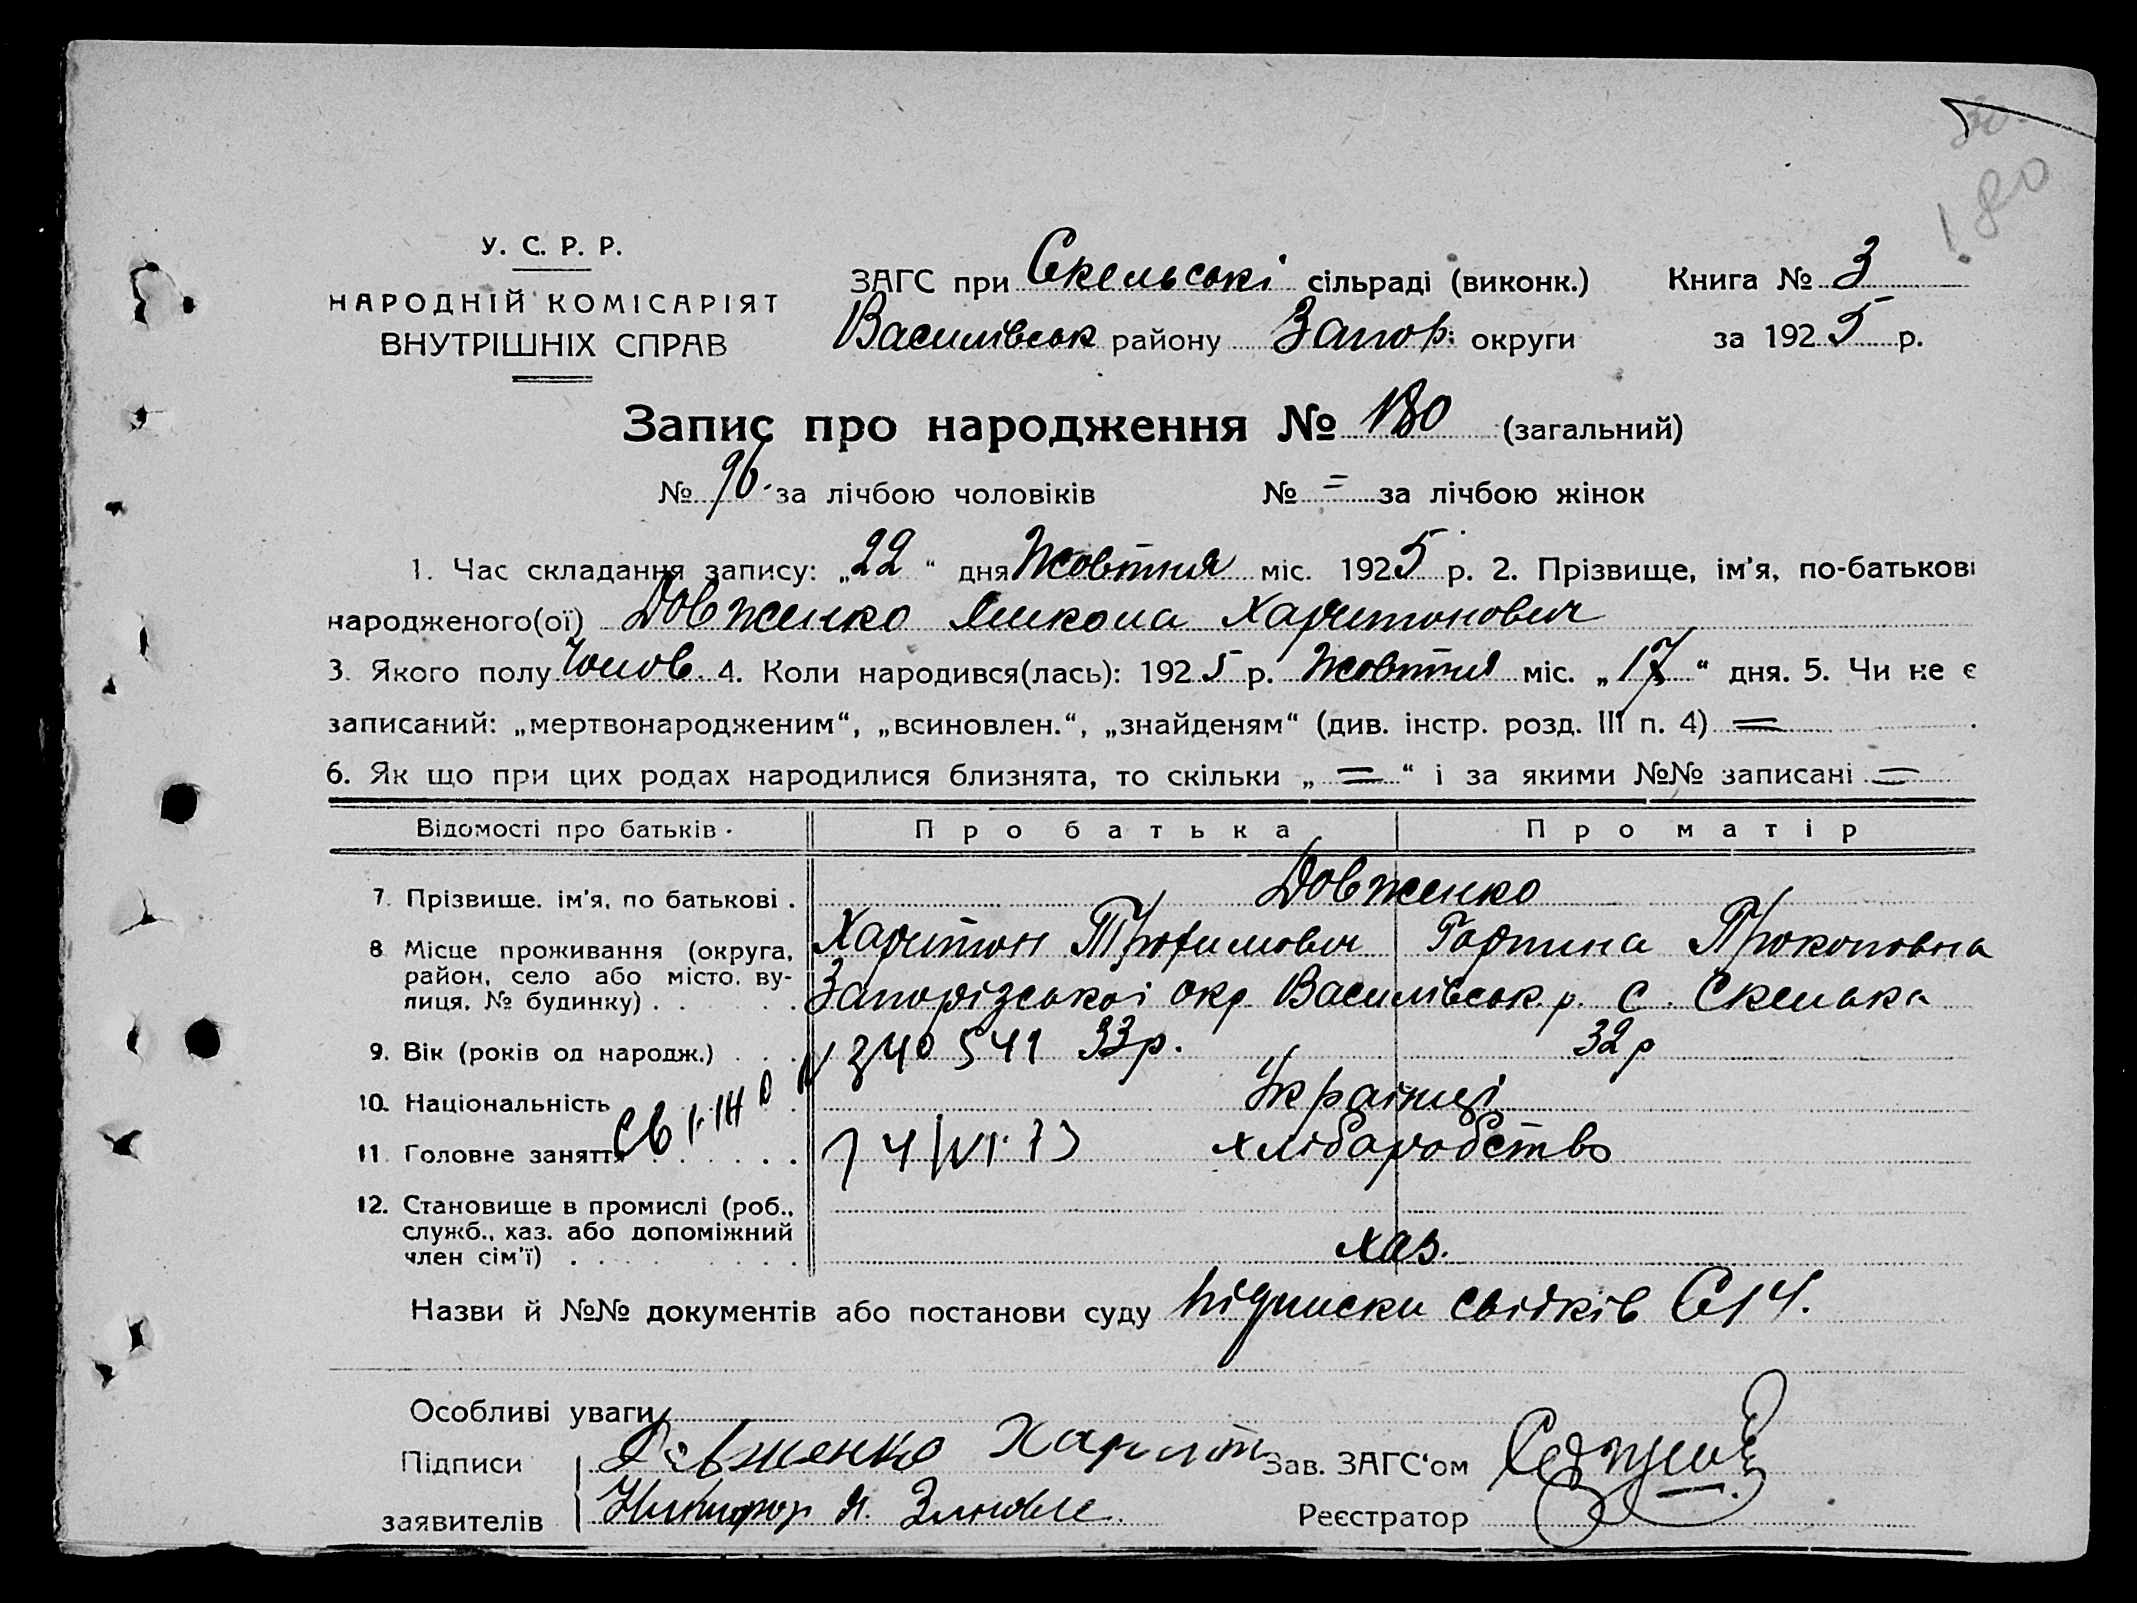 180
У. С. Р. Р.
НАРОДНІЙ КОМІСАРІЯТ
ВНУТРІШНІХ СПРАВ
ЗАГС при Скельські сільраді (виконк.) Книга № 3
Василівськ району Запор: округи за 1925 р.
Запис про народження № 180 (загальний)
№ 96 за лічбою чоловіків № = за лічбою жінок
1. Час складання запису: „22“ дня Жовтня міс. 1925 р. 2. Прізвище, ім'я, по-батькові
народженого(ої) Довженко Микола Харитонович
3. Якого полу Чолов. 4. Коли народився(лась): 1925 р. Жовтня міс. „17“ дня. 5. Чи не є
записаний: „мертвонародженим“, „всиновлен.“, „знайденям“ (див. інстр. розд. III п. 4) =
6. Як що при цих родах народилися близнята, то скільки „=“ і за якими №№ записані =
Відомості про батьків Про батька Про матір
7. Прізвище. ім'я, по батькові . Довженко
Харитон Трофимович Горпина Прокоповна
8. Місце проживання (округа, район, село або місто. вулиця, № будинку) . . . Запорізської окр Василівськ. р. с. Скелька
9. Вік (років од народж.) . . . 33р. 32р
340541
10. Національність Українці
СВ
11. Головне заняття . . . . . хліборобство
4/VI 73
12. Становище в промислі (роб., служб., хаз. або допоміжний член сім'ї) . . . . хаз.
Назви й №№ документів або постанови суду підписки свідків Ст 4.
Особливі уваги
Підписи Довженко Харитон Зав. ЗАГС'ом
заявителів Реєстратор